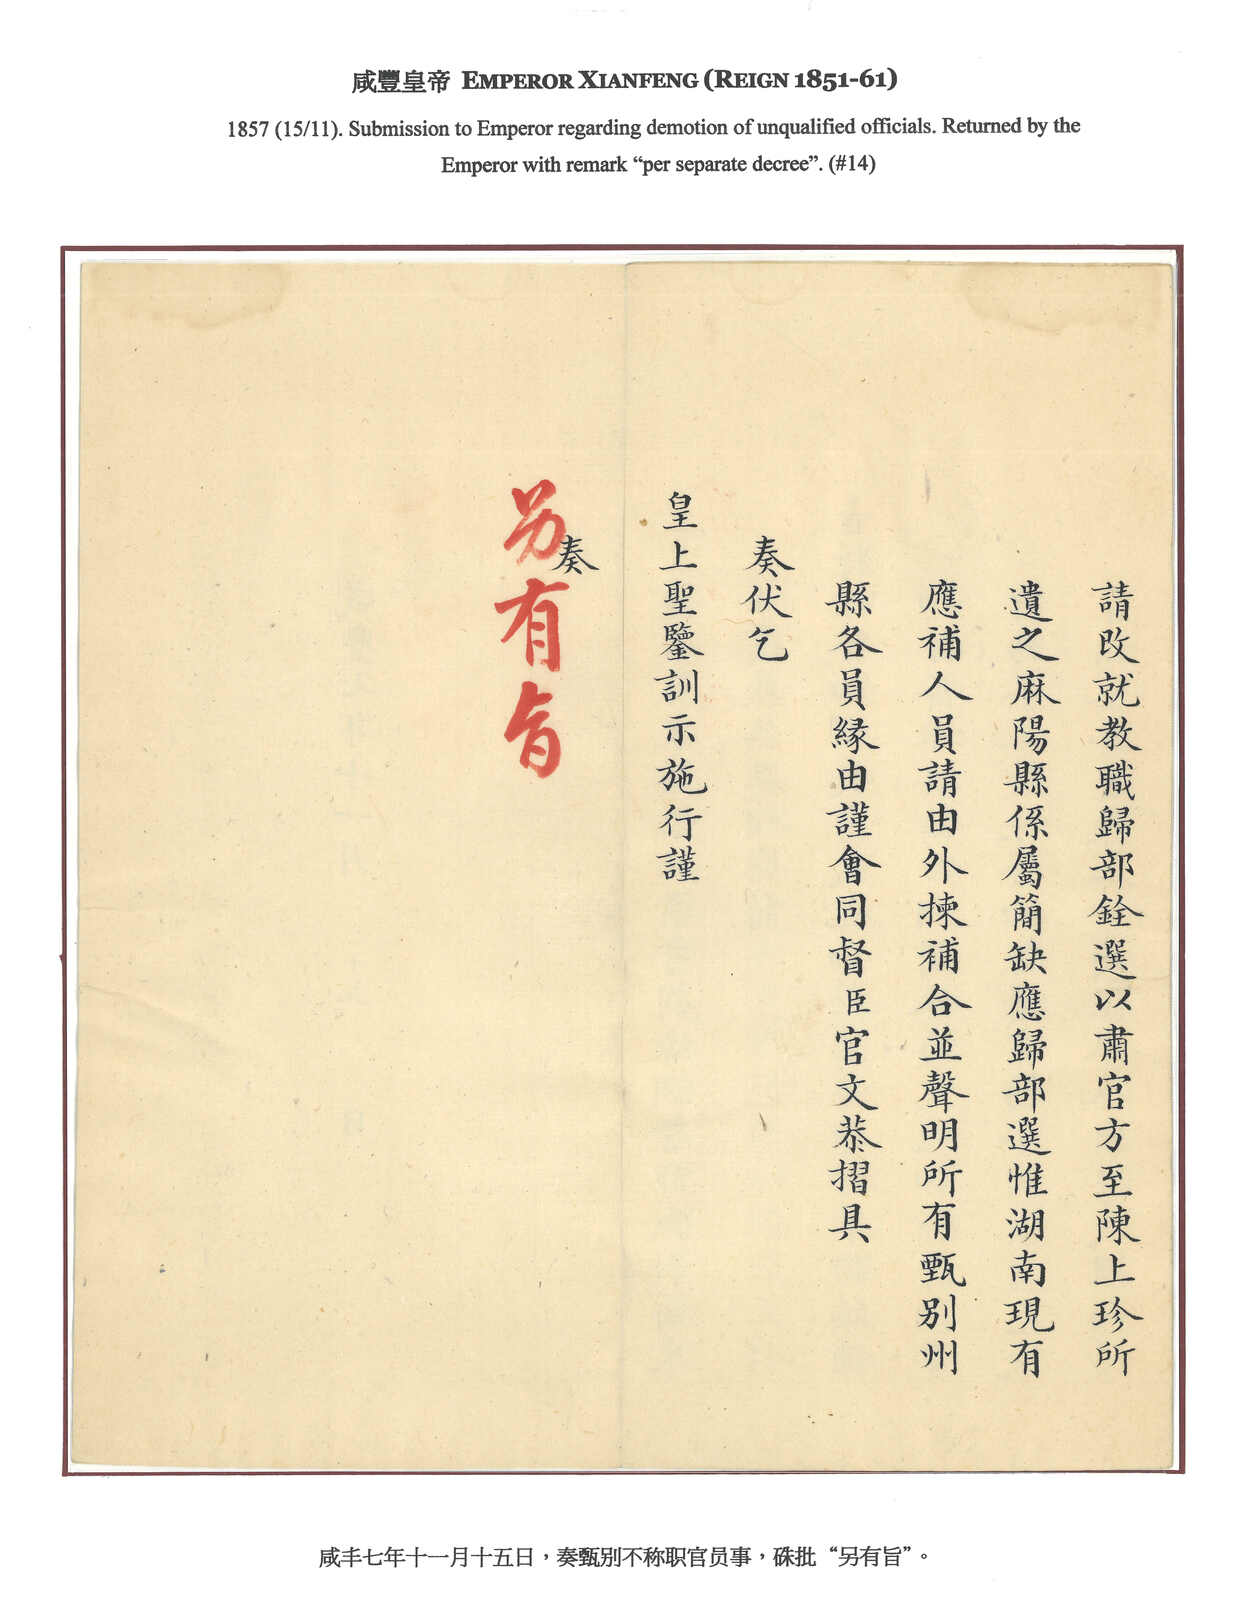 咸豐皇帝 EMPEROR XIANFENG (REIGN 1851-61)
1857 (15/11). Submission to Emperor regarding demotion of unqualified officials. Returned by the
Emperor with remark “per separate decree”. (#14)
請改就教職歸部銓選以肅官方至陳上珍所
遺之麻陽縣係屬簡缺應歸部選惟湖南現有
應補人員請由外揀補合並聲明所有甄别州
縣各員緣由謹會同督臣官文恭摺具
奏伏乞
皇上聖鑒訓示施行謹
奏
另有旨
咸丰七年十一月十五日，奏甄别不称职官员事，硃批“另有旨”。